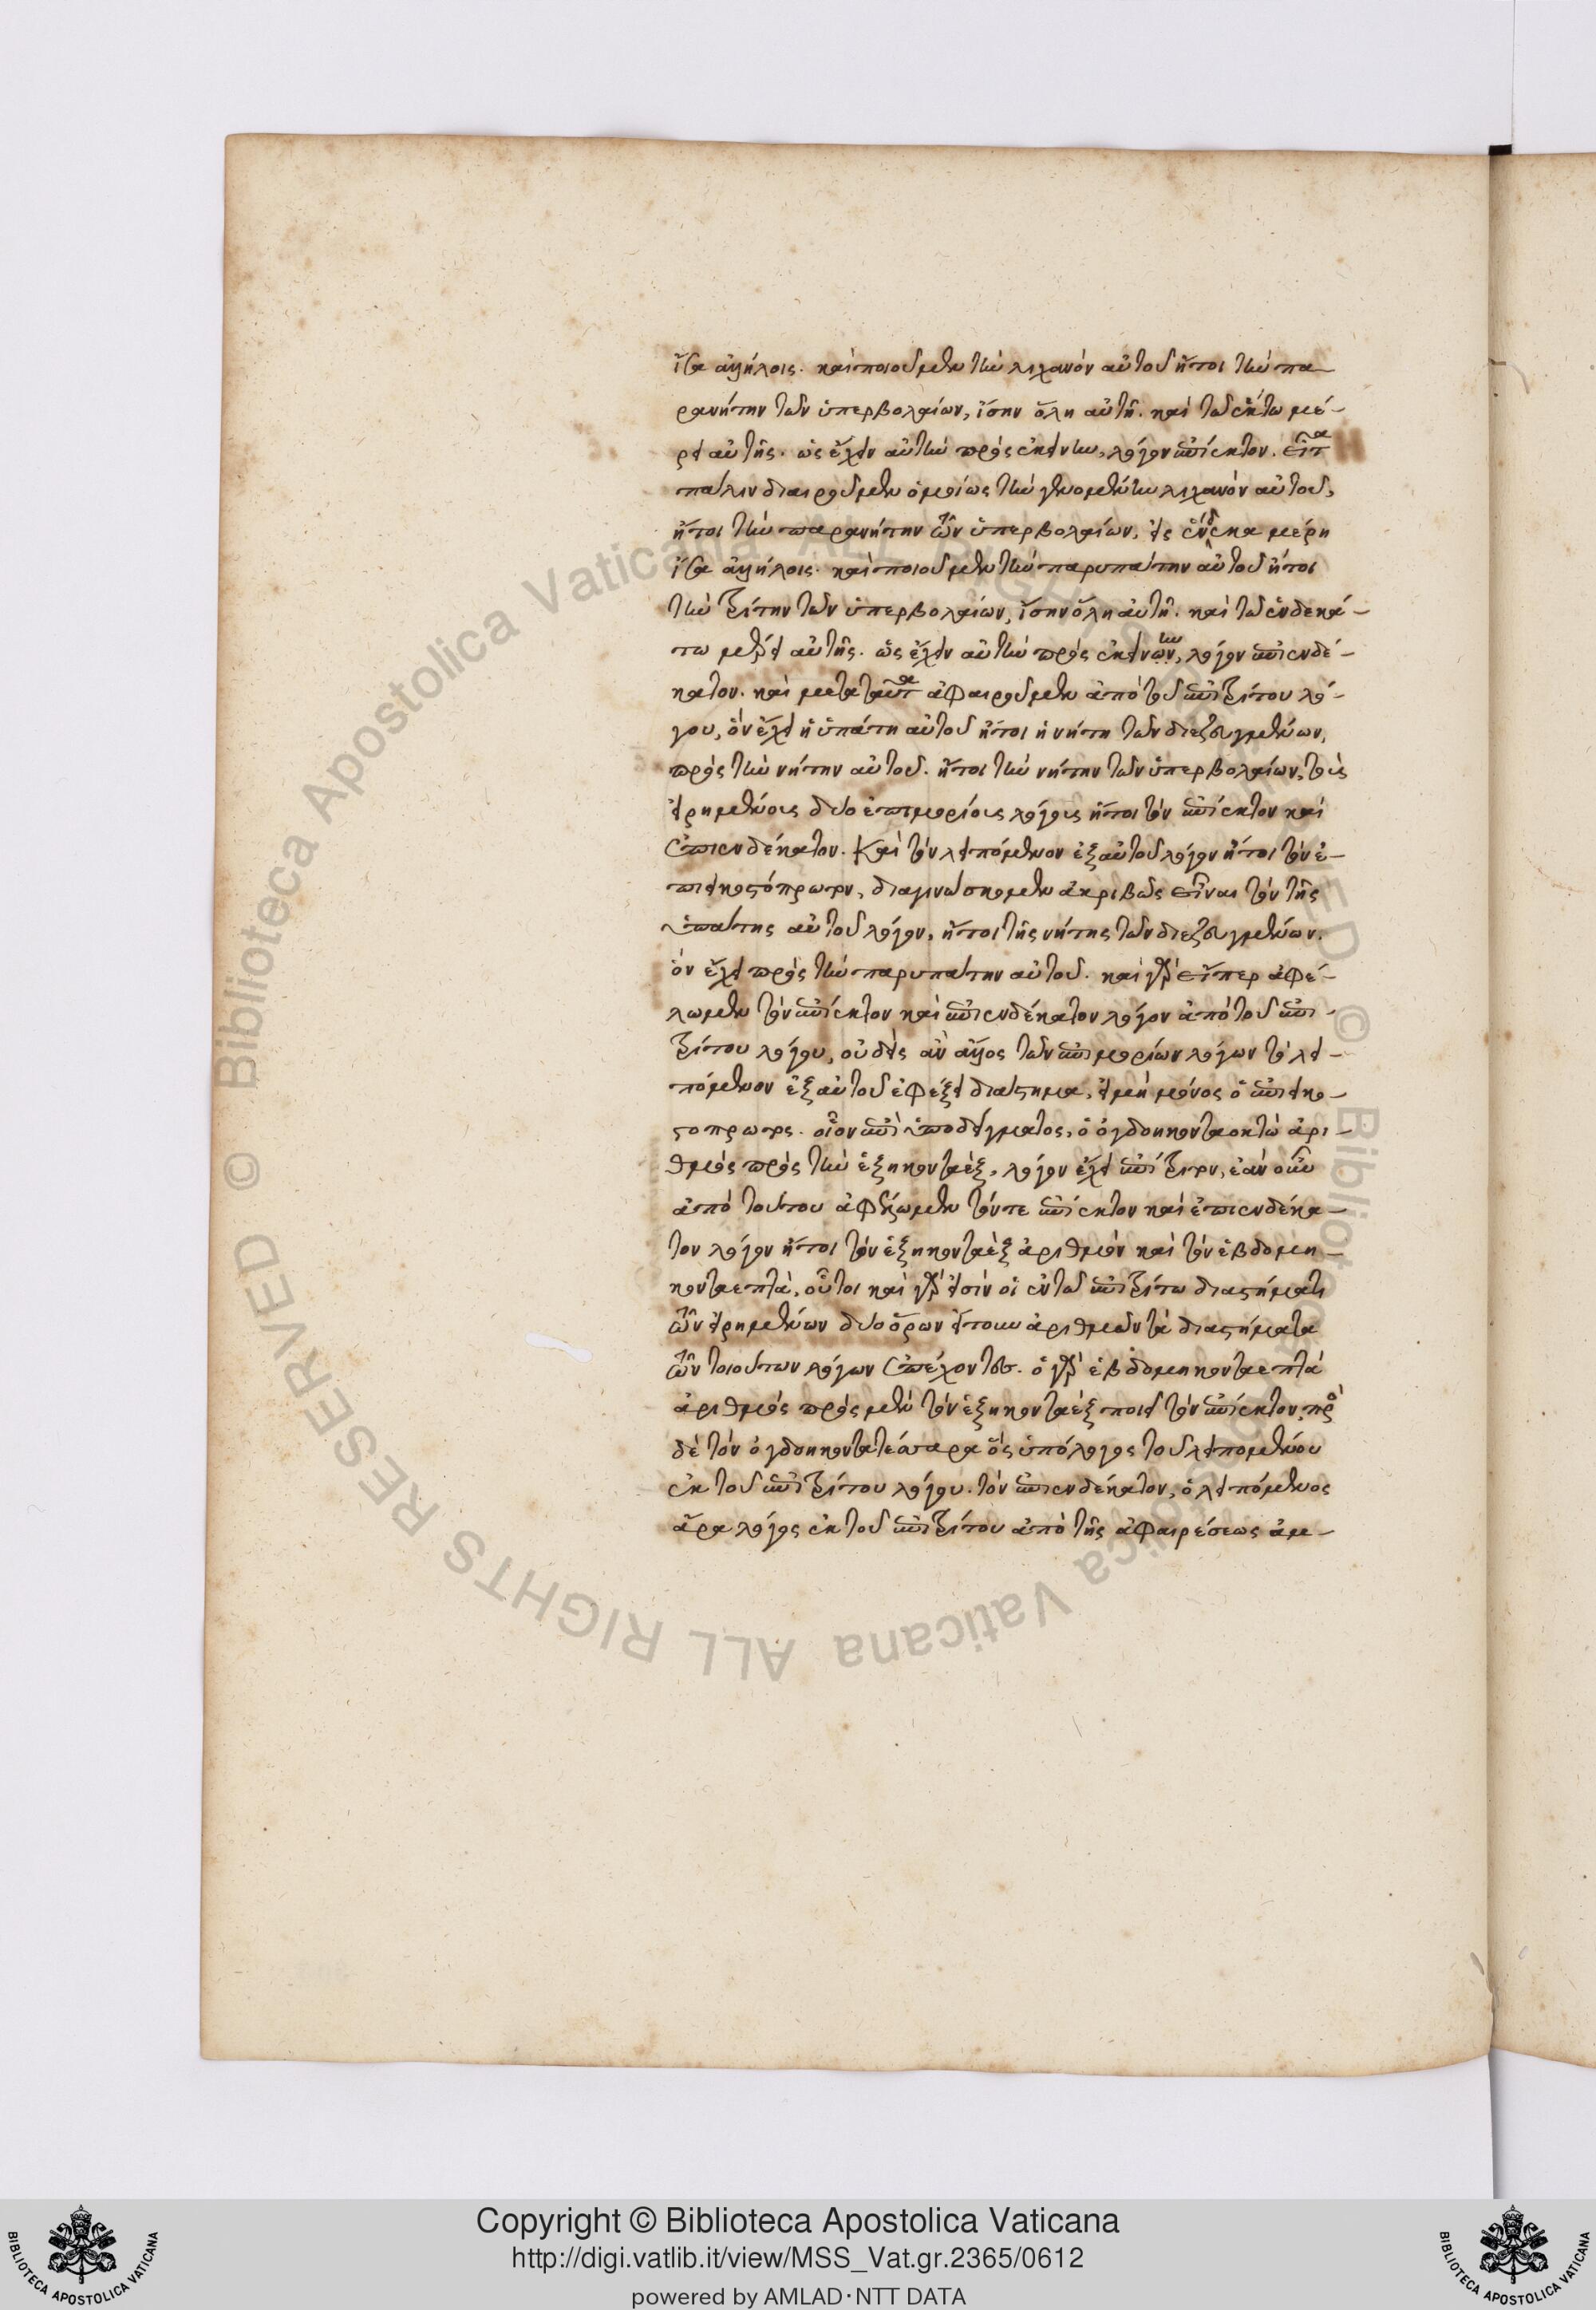 ἴσα ἀλλήλοις. καὶ ποιοῦμεν τὴν λιχανὸν αὐτοῦ ἤτοι τὴν πα-
ρανήτην τῶν ὑπερβολαίων, ἴσην ὅλη αὐτῆ. καὶ τῶ ἕκτω μέ-
ρει αὐτῆς. ὡς ἔχειν αὐτὴν πρὸς ἐκείνην, λόγον ἐπίεκτον. εἶτα
πάλιν διαιροῦμεν ὁμοίως τὴν γενομένην λιχανὸν αὐτοῦ,
ἤτοι τὴν παρανήτην τῶν ὑπερβολαίων, εἰς ἕνδεκα μέρη
ἴσα ἀλλήλοις. καὶ ποιοῦμεν τὴν παρυπάτην αὐτοῦ ἤτοι
τὴν τρίτην τῶν ὑπερβολαίων, ἴσην ὅλη αὐτῆ. καὶ τῶ ἑνδεκά-
τω μέρει αὐτῆς. ὡς ἔχειν αὐτὴν πρὸς ἐκείνην, λόγον ἐπιενδέ-
κατον. καὶ μετὰ ταῦτα ἀφαιροῦμεν ἀπὸ τοῦ ἐπιτρίτου λό-
γου, ὃν ἔχει ἡ ὑπάτη αὐτοῦ ἤτοι ἡ νήτη τῶν διεζευγμένων,
πρὸς τὴν νήτην αὐτοῦ. ἤτοι τὴν νήτην τῶν ὑπερβολαίων, τοὺς
εἰρημένους δύο ἐπιμορίους λόγους ἤτοι τὸν ἐπίεκτον καὶ
ἐπιενδέκατον. Καὶ τὸν λειπόμενον ἐξ αὐτοῦ λόγον ἤτοι τὸν ἐ-
πιεικοστόπρωτον, διαγινώσκομεν ἀκριβῶς εἶναι τὸν τῆς
ὑπάτης αὐτοῦ λόγον, ἤτοι τῆς νήτης τῶν διεζευγμένων.
ὃν ἔχει πρὸς τὴν παρυπάτην αὐτοῦ. καὶ γὰρ εἴπερ ἀφέ-
λωμεν τὸν ἐπίεκτον καὶ ἐπιενδέκατον λόγον ἀπὸ τοῦ ἐπι-
τρίτου λόγου, οὐδεὶς ἂν ἄλλος τῶν ἐπιμορίων λόγων τὸ λει-
πόμενον ἐξ αὐτοῦ ἐφέξει διάστημα, εἰ μὴ μόνος ὁ ἐπιεικο-
στοπρωτος. οἷον ἐπὶ ὑποδείγματος, ὁ ὀγδοηκονταοκτὼ ἀρι-
θμὸς πρὸς τὴν ἑξηκονταὲξ, λόγον ἔχει ἐπίτριτον, ἐὰν οὖν
ἀπὸ τούτου ἀφέλωμεν τόν τε ἐπίεκτον καὶ ἐπιενδέκα-
τον λόγον ἤτοι τὸν ἑξηκονταὲξ ἀριθμὸν καὶ τὸν ἑβδομη-
κονταεπτὰ, οὗτοι καὶ γὰρ εἰσὶν οἱ ἐν τῶ ἐπιτρίτω διαστήματι
τῶν εἰρημένων δύο ὅρων ἤτοι ἀριθμῶν τὰ διαστήματα
τῶν τοιούτων λόγων ἐπέχοντες. ὁ γὰρ ἑβδομηκονταεπτὰ
ἀριθμὸς πρὸς μὲν τὸν ἑξηκονταὲξ ποιεῖ τὸν ἐπίεκτον, πρὸς
δὲ τὸν ὀγδοηκοντατέσσαρα ὅς ὑπόλογος τοῦ λειπομένου
ἐκ τοῦ ἐπιτρίτου λόγου. τὸν ἐπιενδέκατον, ὁ λειπόμενος
ἄρα λόγος ἐκ τοῦ ἐπιτρίτου ἀπὸ τῆς ἀφαιρέσεως ἀμ-
© Biblioteca Apostolica Vaticana ALL RIGHTS RESERVED
Copyright © Biblioteca Apostolica Vaticana
http://digi.vatlib.it/view/MSS_Vat.gr.2365/0612
powered by AMLAD·NTT DATA
BIBLIOTECA APOSTOLICA VATICANA
BIBLIOTECA APOSTOLICA VATICANA